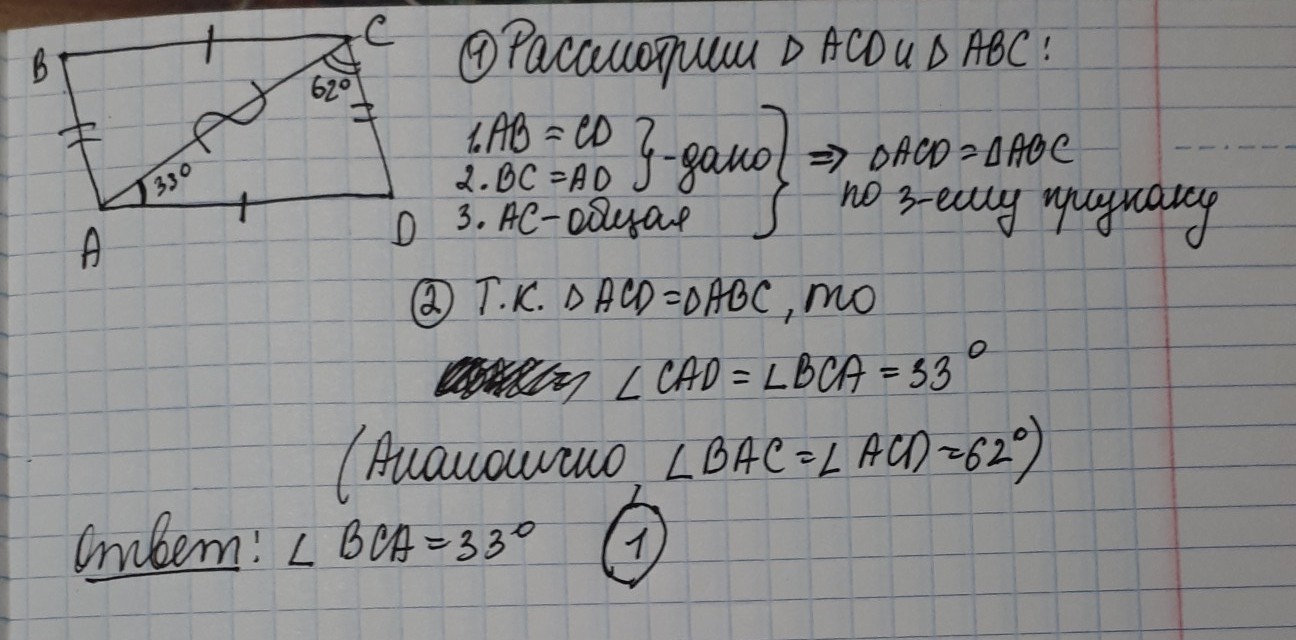 B
C
62°
33°
A
D
① Рассмотрим Δ ACD и Δ ABC:
1. AB = CD
2. BC = AD
} - дано
3. AC - общая
} ⇒ ΔACD = ΔABC
по 3-ему признаку
② Т.к. Δ ACD = ΔABC, то
∠ CAD = ∠BCA = 33°
(Аналогично, ∠ BAC = ∠ ACD = 62°)
Ответ: ∠ BCA = 33° ①